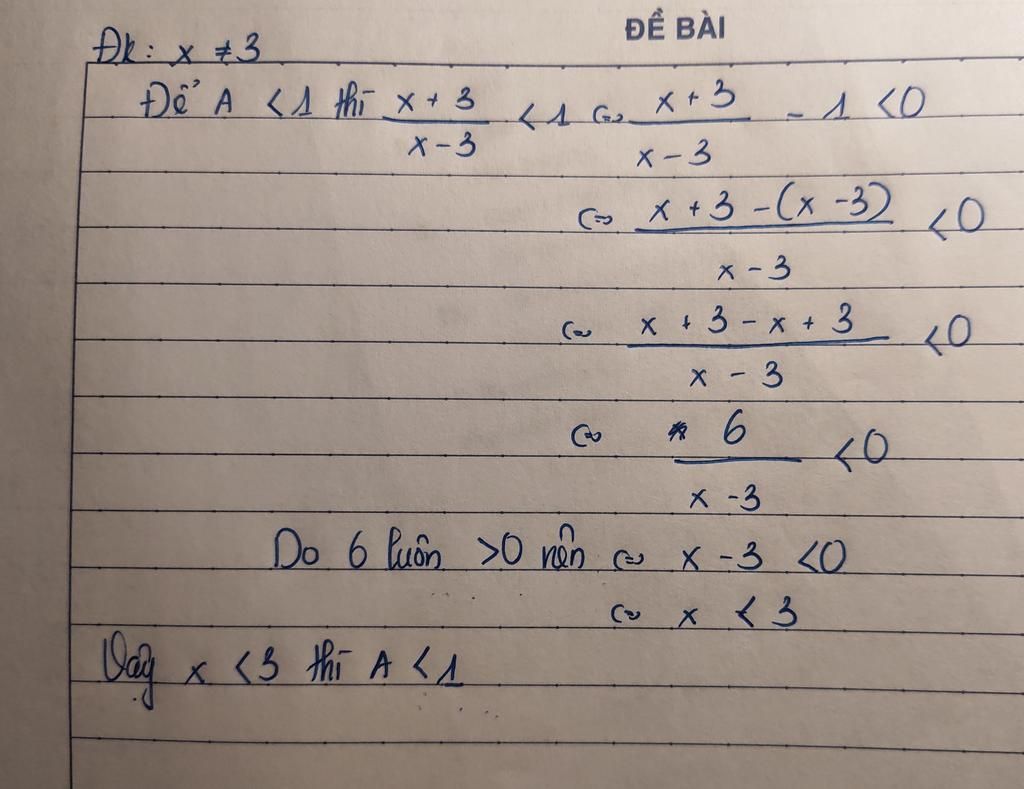 ĐỀ BÀI
Đk: x ≠ 3
Để A < 1 thì (x + 3)/(x - 3) < 1 <=> (x + 3)/(x - 3) - 1 < 0
<=> (x + 3 - (x - 3))/(x - 3) < 0
<=> (x + 3 - x + 3)/(x - 3) < 0
<=> 6/(x - 3) < 0
Do 6 luôn > 0 nên <=> x - 3 < 0
<=> x < 3
Vậy x < 3 thì A < 1